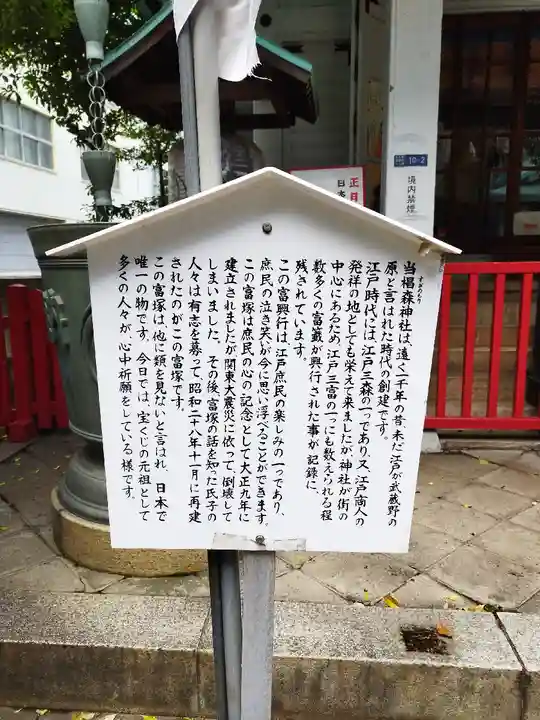 当椙森神社は、遠く一千年の昔、未だ江戸が武蔵野の
すぎのもり
原と言はれた時代の創建です。
江戸時代には、江戸三森の一つであり、又、江戸商人の
発祥の地としても栄えて来ましたが、神社が街の
中心にあるため、江戸三富の一つにも数えられる程
数多くの富籤が興行された事が記録に、
残されています。
この富興行は、江戸庶民の楽しみの一つであり、
庶民の泣き笑いが今に思い浮べることができます。
この富塚は庶民の心の記念として大正九年に
建立されましたが関東大震災に依って、倒壊して
しまいました。その後、富塚の話を知った氏子の
人々は有志を募って、昭和二十八年十一月に再建
されたのがこの富塚です。
この富塚は、他に類を見ないと言はれ、日本で
唯一の物です。今日では、宝くじの元祖として
多くの人々が、心中祈願をしている様です。
10-2
境内禁煙
正月
日本